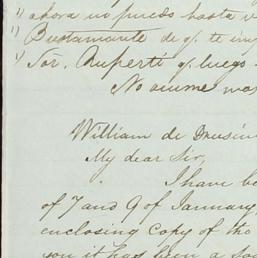 ahora no puedo hasta
Bustamante de q. te
Sor. Ruperti q. luego
No
William de Drusin
My dear Sir,
I have
of 7 and 9 of January,
enclosing Copy of the
it has been a